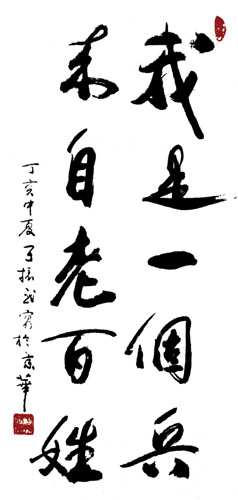 我是一個兵
来自老百姓
丁亥中夏了振武写於京華